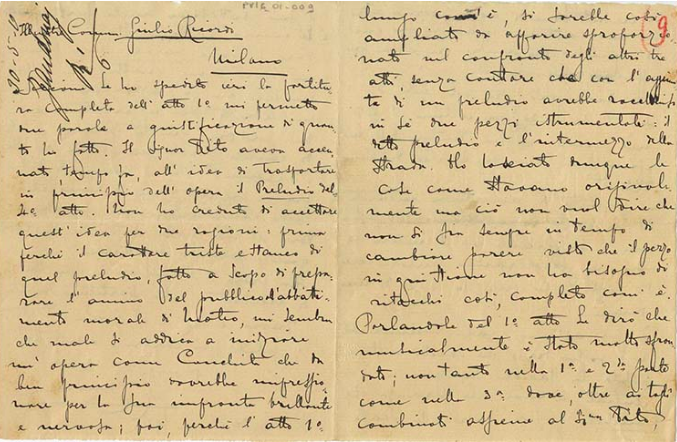 PVIG 01-009
20-5-10
Illustre Comm. Giulio Ricordi
Milano
Siccome Le ho spedito ieri la partitu-
ra completa dell' atto 1º mi permetto
due parole a giustificazione di quan-
to ho fatto. Il Signor Tito aveva accen-
nato, tempo fa, all' idea di trasportare
in principio dell' opera il Preludio del
4º atto. Non ho creduto di accettare
quest' idea per due ragioni: prima
perchè il carattere triste e stanco di
quel preludio, fatto a scopo di prepa-
rare l' animo del pubblico all'abbatti-
mento morale di Mateo, mi sembra
che male si addica a iniziare
un' opera come Conchita che da
bel principio dovrebbe impressio-
nare per la sua impronta brillante
e nervosa; poi, perchè l' atto 1º
9
lungo com'è, si sarebbe così
ampliato da apparire sproporzio-
nato nel confronto degli altri tre
atti, senza contare che con l' aggiun-
ta di un preludio avrebbe racchiuso
in sè due pezzi istrumentali: il
detto preludio e l'intermezzo della
strada. Ho lasciato dunque le
cose come stavano original-
mente ma ciò non vuol dire che
non si sia sempre in tempo di
cambiare parere visto che il pezzo
in questione non ha bisogno di
ritocchi così, completo com' è.
Parlandole del 1º atto Le dirò che
musicalmente è stato molto sfron-
dato; non tanto nella 1ª e 2ª parte
come nella 3ª dove, oltre ai tagli
combinati assieme al Sigr Tito,